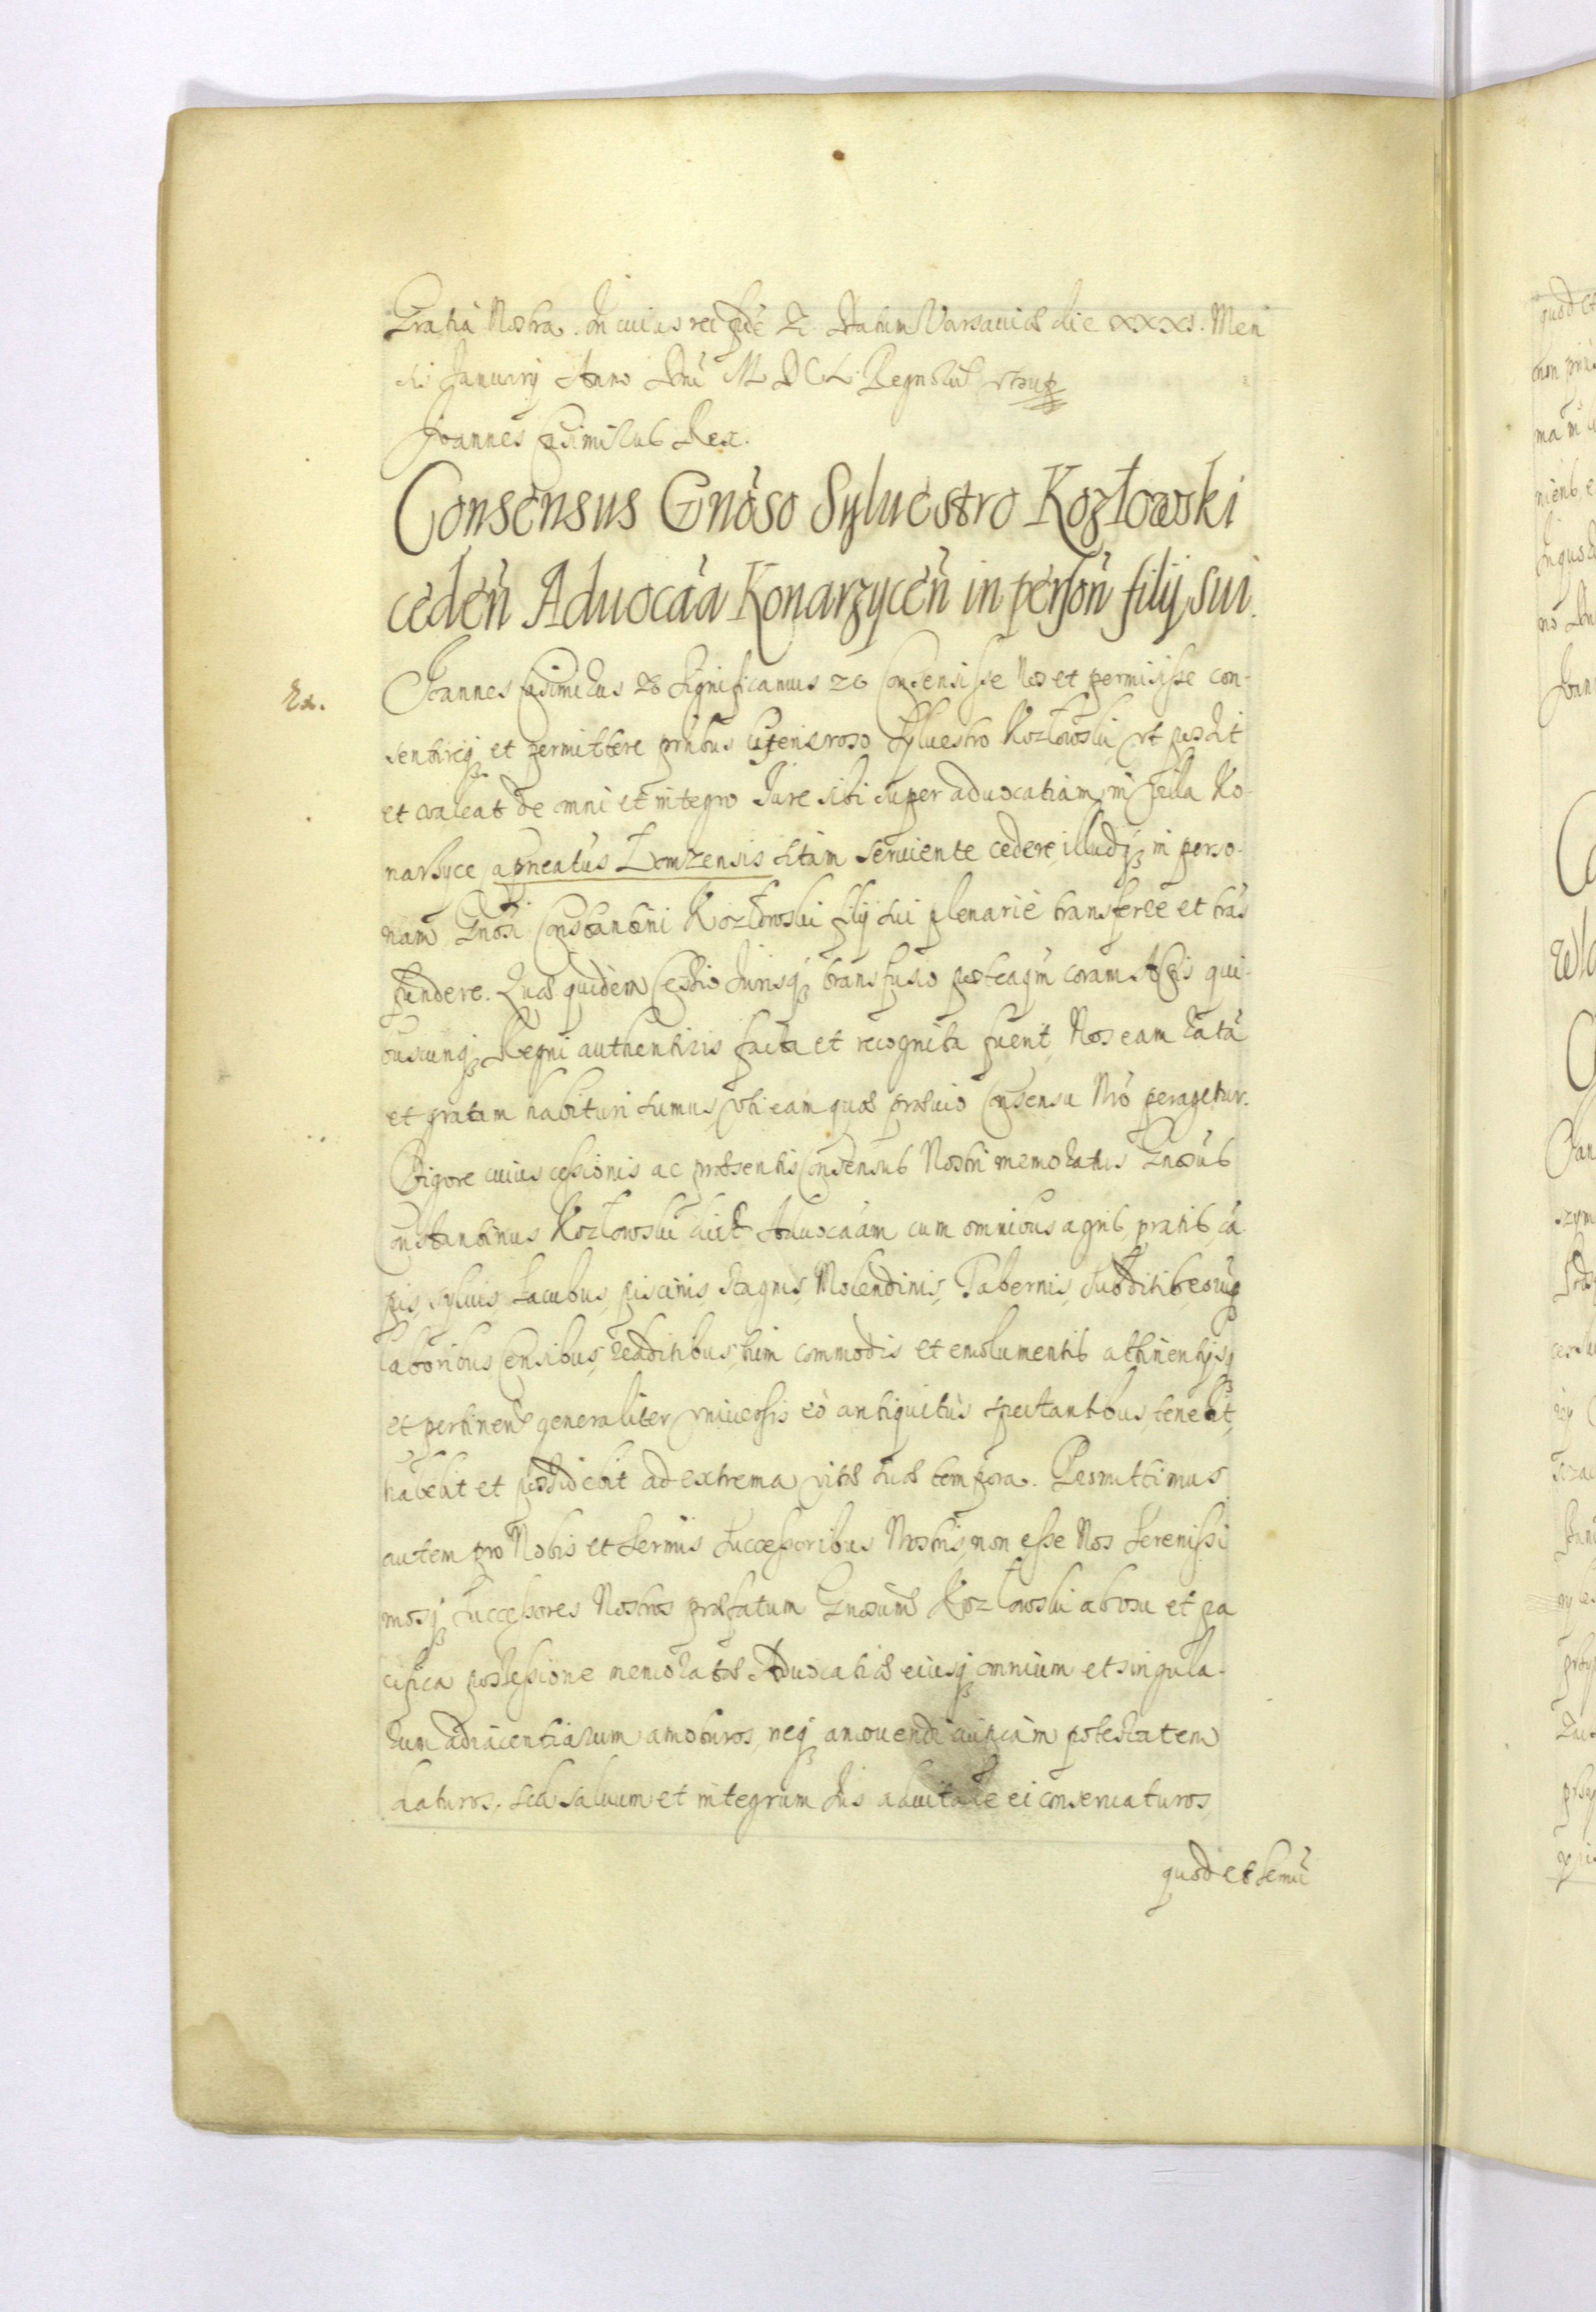 Gratia Nostra. In cuius rei fidẽ &c. Datum Varsauiæ die XXXI. Men
sis January Anno Dni M D C L. Regnorũ vt supra
Joannes Casimirus Rex.
Consensus Gnoso Syluestro Kozłowski
ceden Aduocãa Konarzycen in person filij sui.
Ex.
Joannes Casimirus &c Significamus &c Consensisse Nos et permisisse con-
sentireq; et permittere pntibus Generoso Syluestro Kozłowski, vt possit
et valeat de omni et integro Jure sibi super aduocatiam in Villa Ko-
narzyce Capneatus Łomzensis sitam seruiente cedere, illudq; in perso-
nam Gnosi Constantini Kozłowski filij sui plenarie transferre et trãs
fundere. Quæ quidem Cessio Jurisq; transfusio posteaqm coram Actis qui-
buscunq; Regni authenticis facta et recognita fuerit, Nos eam ratã
et gratam habituri sumus, vti eam quæ præuio Consensu Nro peragetur.
Vigore cuius cessionis ac præsentis Consensus Nostri memoratus Gnosus
Constantinus Kozłowski dict Aduocaãm cum omnibus agris, pratis, cã-
pis, syluis, Lacubus, piscinis, stagnis, Molendinis, Tabernis, subditis eorūq;
laboribus Censibus, redditibus, commodis et emolumentis attinentijsq;
et pertinen generaliter vniuersis eo antiquitùs spectantibus, tenebit,
habebit et possidebit ad extrema vitæ suæ tempora. Promittimus
autem pro Nobis et Sermis Successoribus Nostris, non esse Nos Serenissi
mosq; Successores Nostros præfatum Gnosum Kozłowski ab vsu et pa
cifica possessione memoratæ Aduocatiæ eiusq; omnium et singula-
rum adiacentiarum amoturos, neq; amouendi cuipiam potestatem
daturos. Sed saluum et integrum Jus aduitale ei conseruaturos,
quod et Sermi